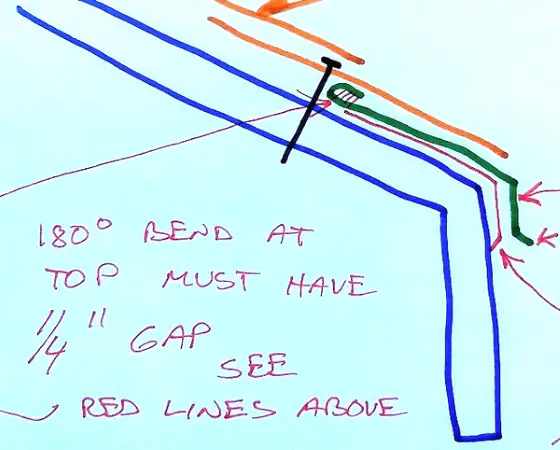 180° BEND AT
TOP MUST HAVE
1/4" GAP
SEE
RED LINES ABOVE